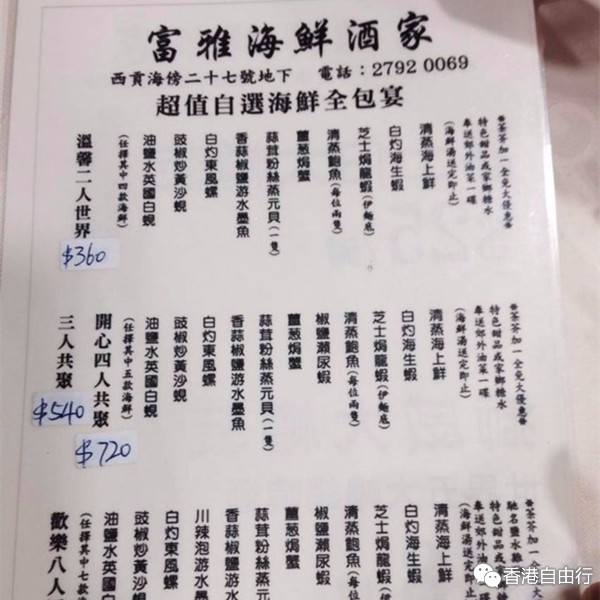 富雅海鮮酒家
西貢海傍二十七號地下 電話：2792 0069
超值自選海鮮全包宴
※茶芥加一全免大優惠※
特色甜品或家鄉糖水
奉送郊外油菜一碟
(海鮮湯送完即止)
清蒸海上鮮
白灼海生蝦
芝士焗龍蝦(伊麵底)
清蒸鮑魚(每位兩隻)
薑葱焗蟹
蒜茸粉絲蒸元貝(一隻)
香蒜椒鹽游水墨魚
白灼東風螺
豉椒炒黃沙蜆
油鹽水英國白蜆
(任擇其中四款海鮮)
溫馨二人世界
$360
※茶芥加一全免大優惠※
特色甜品或家鄉糖水
奉送郊外油菜一碟
(海鮮湯送完即止)
清蒸海上鮮
白灼海生蝦
芝士焗龍蝦(伊麵底)
清蒸鮑魚(每位兩隻)
椒鹽瀨尿蝦
薑葱焗蟹
蒜茸粉絲蒸元貝(一隻)
香蒜椒鹽游水墨魚
白灼東風螺
豉椒炒黃沙蜆
油鹽水英國白蜆
(任擇其中五款海鮮)
開心四人共聚
$720
三人共聚
$540
※茶芥加一全免大優惠※
馳名鹽水
特色甜品或
奉送郊外油菜
(海鮮湯送完即止)
清蒸海上鮮
白灼海生蝦
芝士焗龍蝦(伊麵
清蒸鮑魚(每位兩
椒鹽瀨尿蝦
薑葱焗蟹
蒜茸粉絲蒸元貝
香蒜椒鹽游水墨
川辣泡游水墨
白灼東風螺
豉椒炒黃沙蜆
油鹽水英國白
(任擇其中七款
歡樂八人
香港自由行